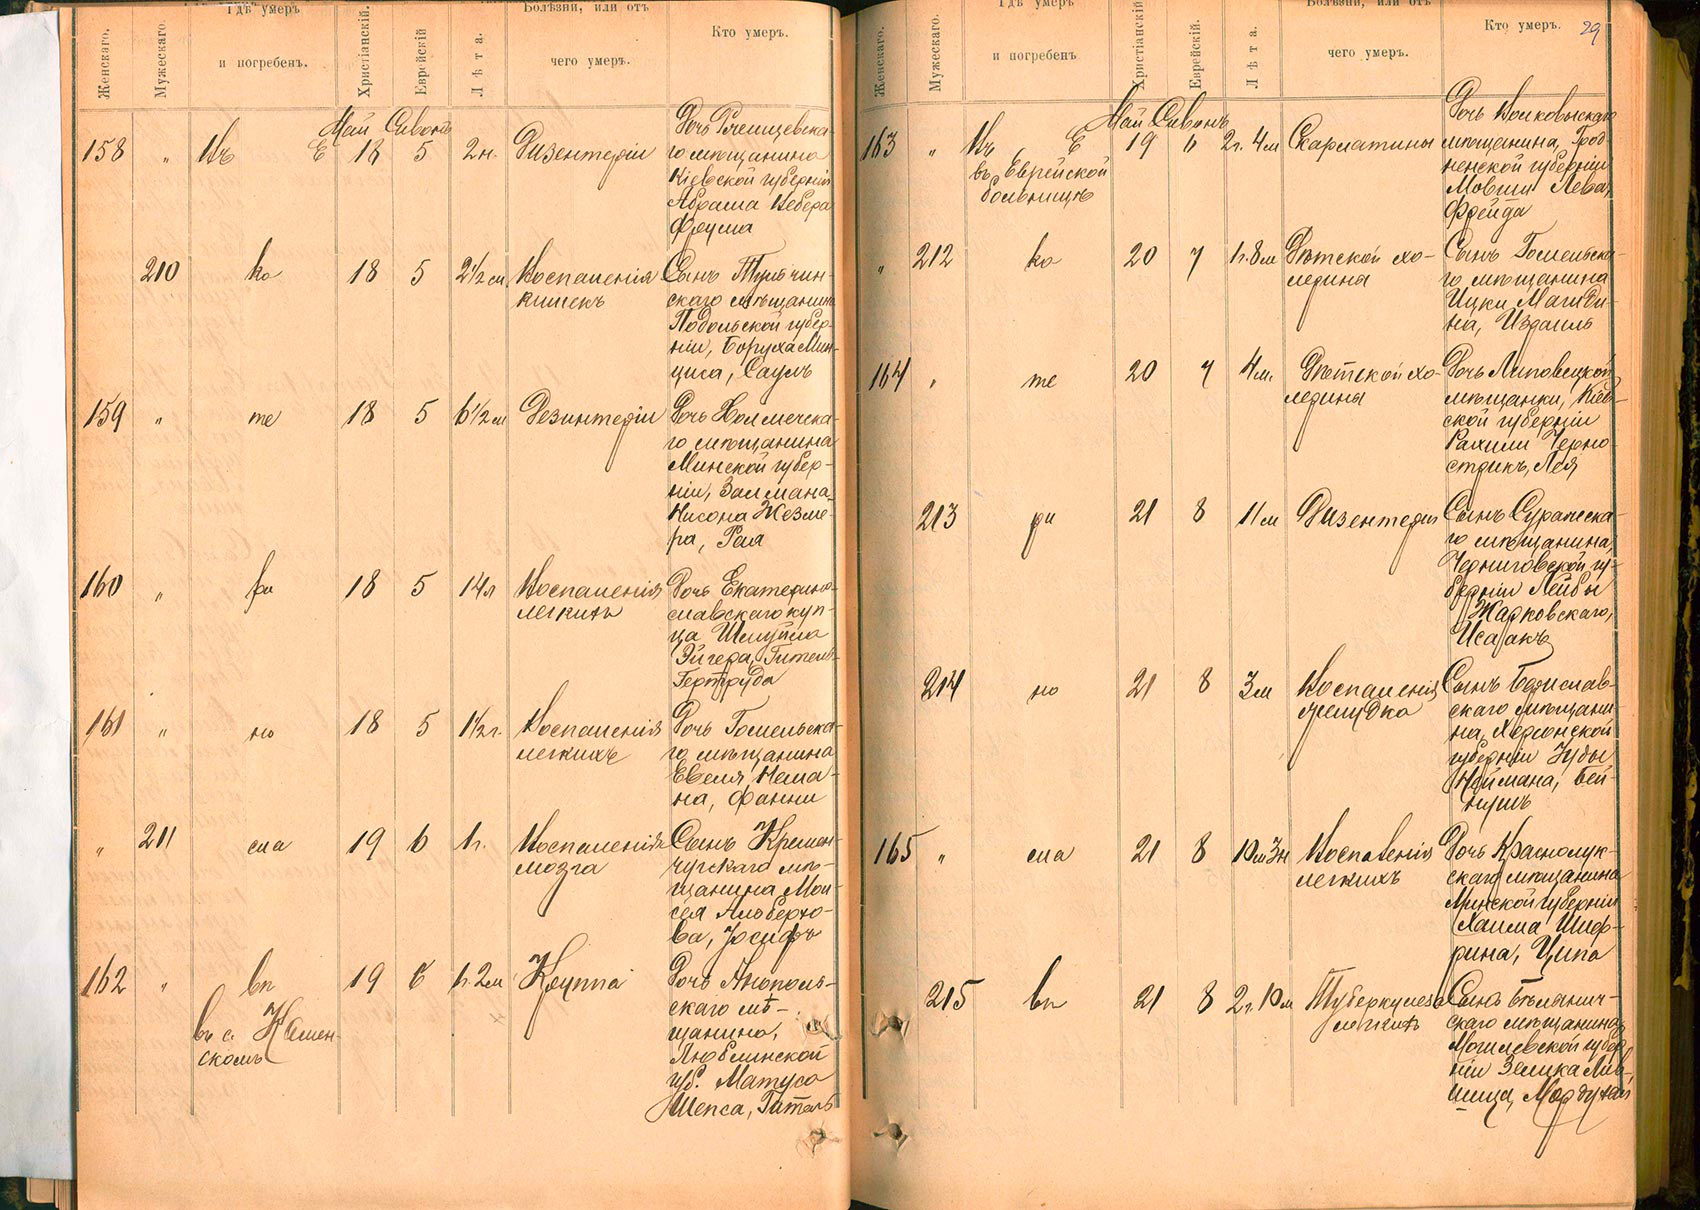 Женскаго.
Мужескаго.
Гдѣ умеръ
и погребенъ.
Христіанскій.
Еврейскій
Лѣта.
Болѣзни, или отъ
чего умеръ.
Кто умеръ.
Май Сивонъ
158 " Въ Е 18 5 2 н. Дизентеріи
Дочь Речицевска-
го мѣщанина
Кіевской губерніи
Абрама Вебера
Фрума
210 ко 18 5 2½ м Воспаленія
кишекъ
Сынъ Тульчин-
скаго мѣщанина
Подольской губер-
ніи, Боруха Мин-
циса, Сауль
159 " те 18 5 6½ м Дезинтеріи
Дочь Холмечска-
го мѣщанина
Минской губер-
ніи, Залмана-
Нисона Жезме-
ра, Рая
160 " ри 18 5 14 л Воспаленія
легкихъ
Дочь Екатерино-
славскаго куп-
ца Шмуйла
Эйгера, Гитель-
Гертруда
161 " но 18 5 1½ г. Воспаленія
легкихъ
Дочь Гомельска-
го мѣщанина
Евеля Нема-
на, Фанни
" 211 сла 19 6 1 г. Воспаленія
мозга
Сынъ Кремен-
чугскаго мѣ-
щанина Мои-
сея Альберхо-
ва, Іосифъ
162 " вп 19 6 1 г. 2 м Круппа
въ с. Камен-
скомъ
Дочь Анополь-
скаго мѣ-
щанина,
Люблинской
губ. Матуса
Шепса, Гитель
Женскаго.
Мужескаго.
Гдѣ умеръ
и погребенъ.
Христіанскій
Еврейскій.
Лѣта.
Болѣзни, или отъ
чего умеръ.
Кто умеръ.
29
Май Сивонъ
163 " Въ Е 19 6 2 г. 4 м Скарлатины
въ Еврейской
больницѣ
Дочь Волковыскаго
мѣщанина, Грод-
ненской губерніи
Мовши Лева,
Фрейда
" 212 ко 20 7 1 г. 8 м Дѣтской хо-
лерина
Сынъ Гомельска-
го мѣщанина
Ицки Магиди-
на, Израиль
164 " те 20 7 4 м. Дѣтской хо-
лерины
Дочь Липовецкой
мѣщанки, Кіев-
ской губерніи
Рахили Черно-
стрикъ, Лея
213 ри 21 8 11 м Дизентеріи
Сынъ Суражска-
го мѣщанина,
Черниговской гу-
берніи Лейбы
Жарковскаго,
Исаакъ
214 но 21 8 3 м Воспаленія
желудка
Сынъ Бериславъ-
скаго мѣщани-
на, Херсонской
губерніи Зуды
Неймана, Бей-
нушъ
165 " сла 21 8 10 м 3 н Воспаленія
легкихъ
Дочь Краснолук-
скаго мѣщанина
Минской губерніи
Хаима Шиф-
рина, Ципа
215 вп 21 8 2 г. 10 м Туберкулеза
легкихъ
Сынъ Бѣлынич-
скаго мѣщанина,
Могилевской губер-
ніи Зелика Лив-
шица, Мордухай